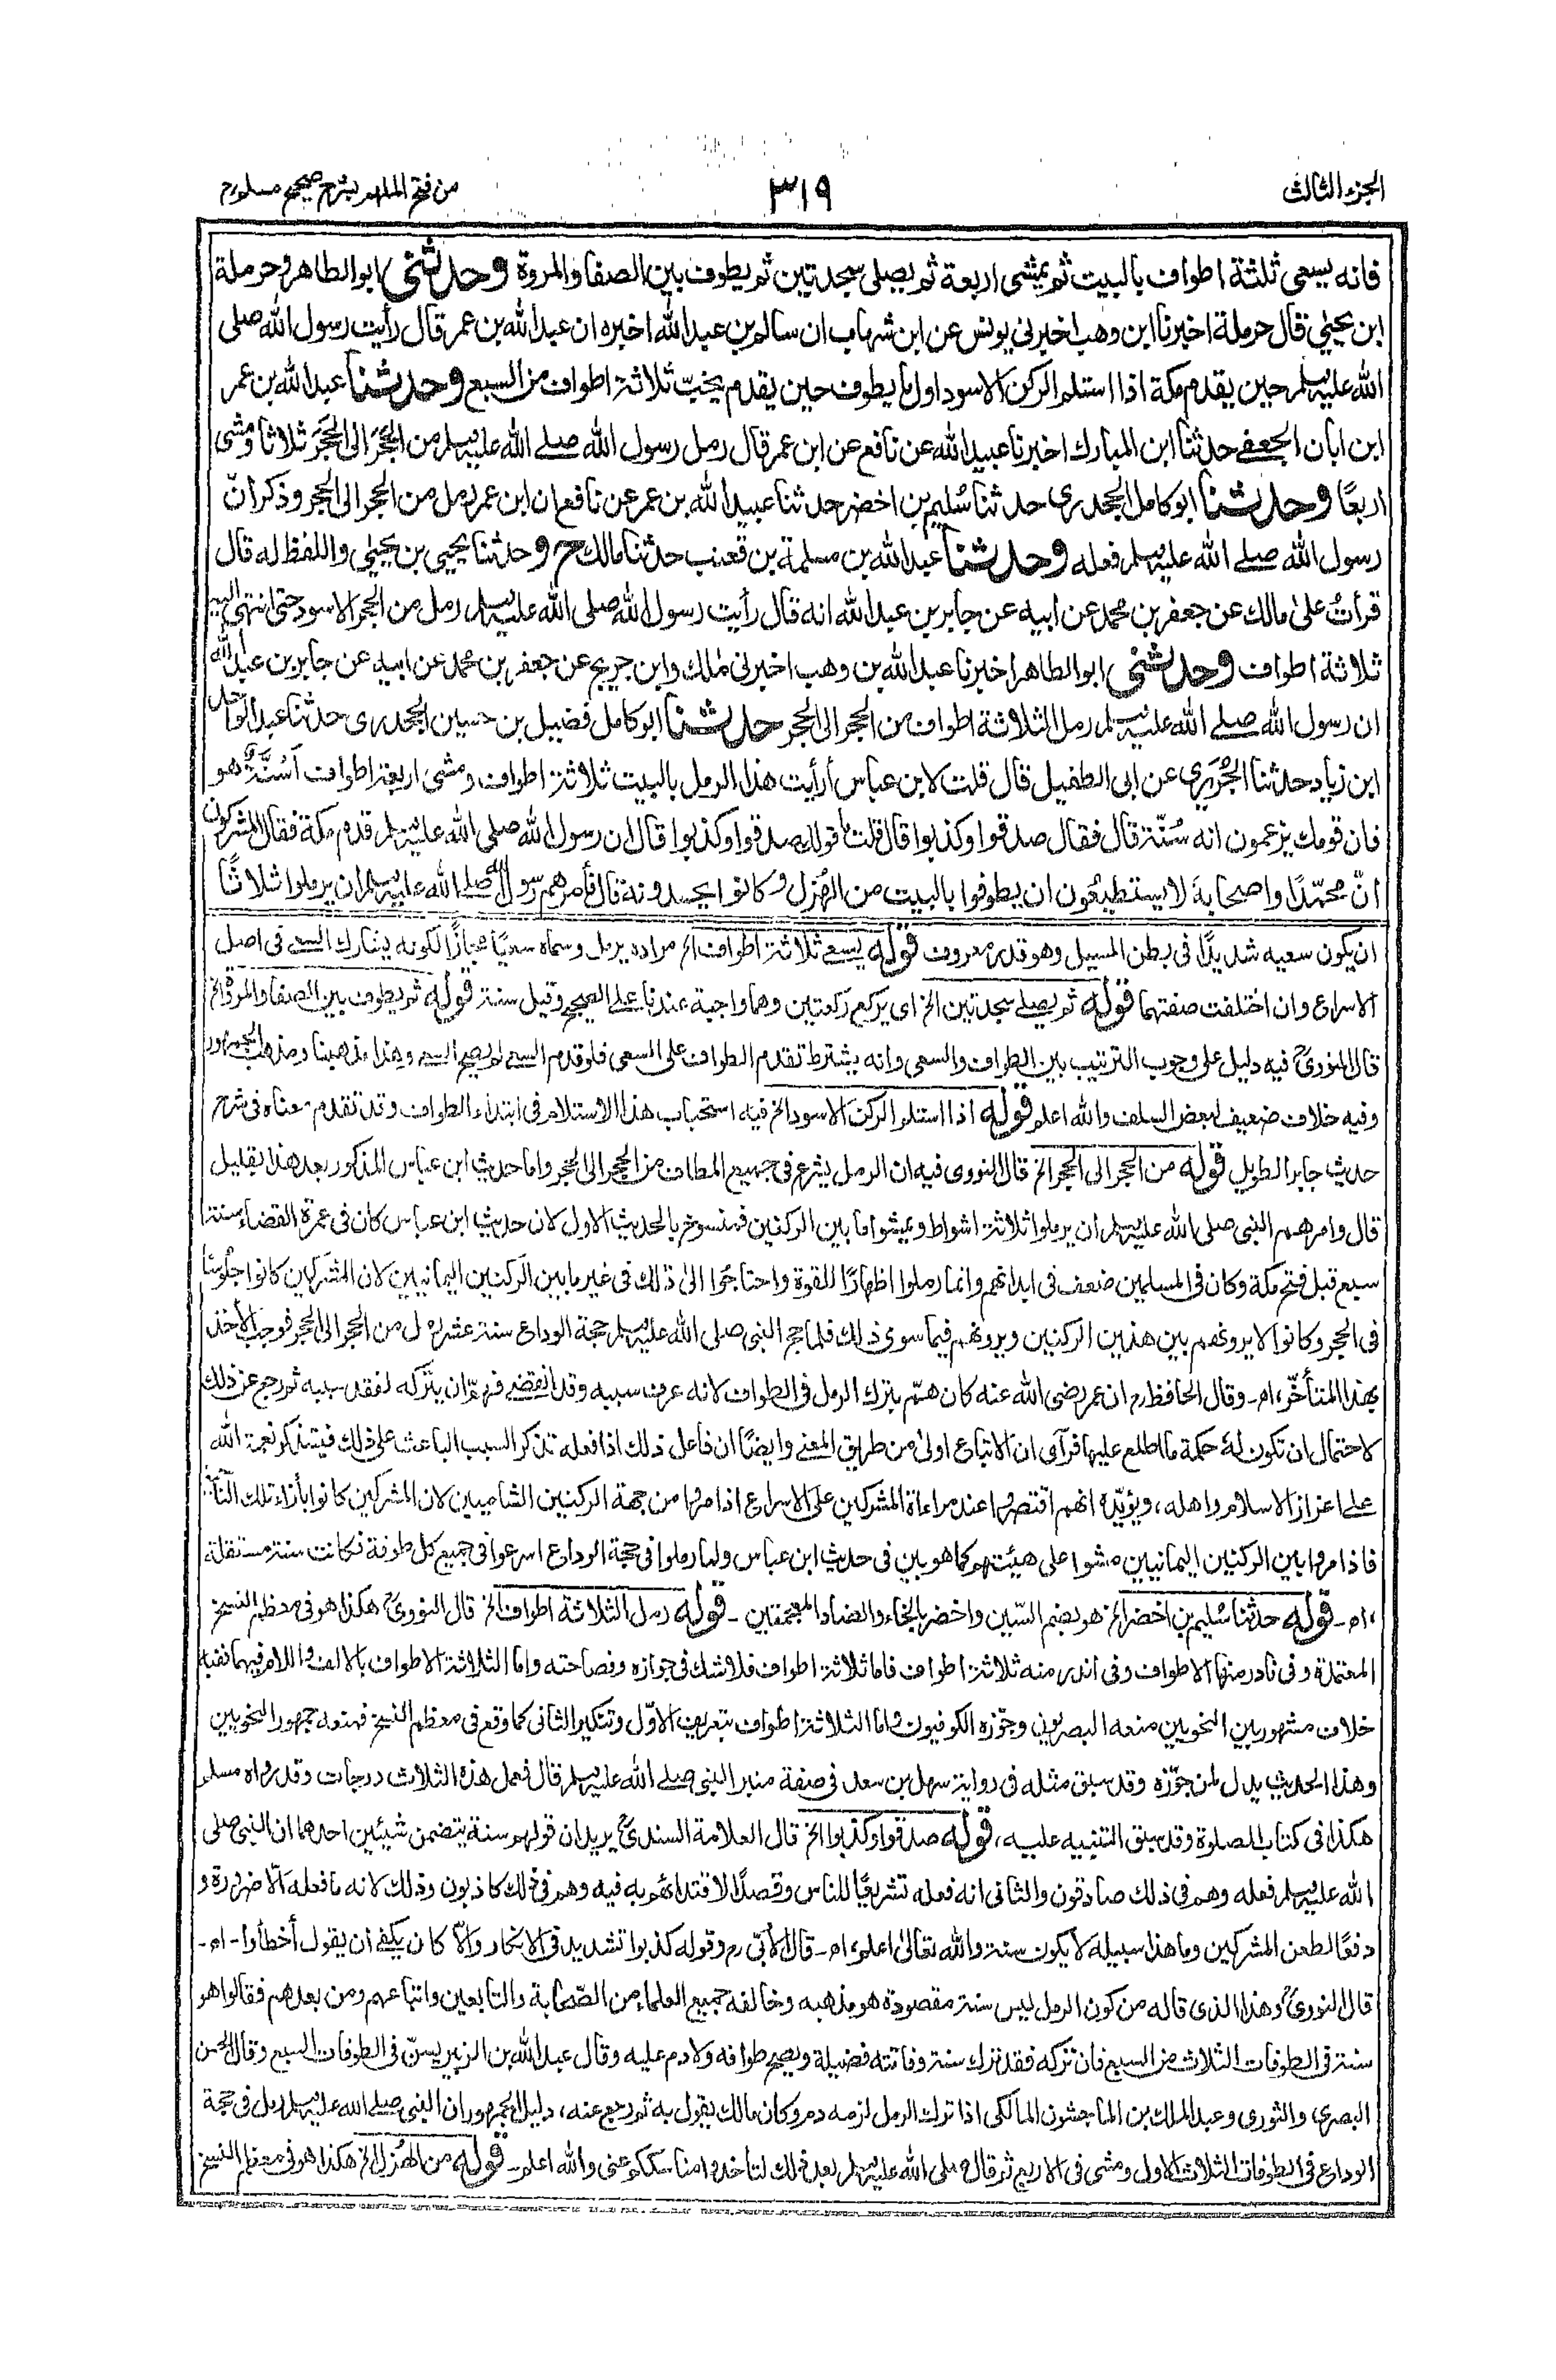 الجزء الثالث
٣١٩
من فتح الملهم بشرح صحيح مسلم رح
فانه يسعى ثلثة اطواف بالبيت ثم يمشى اربعة ثم يصلى سجدتين ثم يطوف بين الصفا والمروة وحدثنى ابوالطاهر وحرملة
ابن يحيٰي قال حرملة اخبرنا ابن وهب اخبرنى يونس عن ابن شهاب ان سالم بن عبد الله اخبره ان عبد الله بن عمر قال رأيت رسول الله صلى
الله عليه وسلم حين يقدم مكة اذا استلم الركن الاسود اول ما يطوف حين يقدم يخبّ ثلاثة اطواف من السبع وحدثنا عبد الله بن عمر
ابن ابان الجعفے حدثنا ابن المبارك اخبرنا عبيد الله عن نافع عن ابن عمر قال رمل رسول الله صلے الله عليه وسلم من الحَجَر الى الحَجَر ثلاثا ومشى
اربعًا وحدثنا ابوكامل الجحدرى حدثنا سُليم بن اخضر حدثنا عبيد الله بن عمر عن نافع ان ابن عمر رمل من الحجر الى الحجر وذكر انّ
رسول الله صلے الله عليه وسلم فعله وحدثنا عبد الله بن مسلمة بن قعنب حدثنا مالك ح وحدثنا يحيى بن يحيٰي واللفظ له قال
قرأتُ علىٰ مالك عن جعفر بن محمد عن ابيه عن جابر بن عبد الله انه قال رأيت رسول الله صلى الله عليه وسلم رمل من الحجر الاسود حتى انتهى اليه
ثلاثة اطواف وحدثنى ابوالطاهر اخبرنا عبد الله بن وهب اخبرنى مٰلك وابن جريج عن جعفر بن محمد عن ابيه عن جابر بن عبد الله
ان رسول الله صلے الله عليه وسلم رمل الثلاثة اطواف من الحجر الى الحجر حدثنا ابوكامل فضيل بن حسين الجحدرى حدثنا عبد الواحد
ابن زياد حدثنا الجُرَيرى عن ابى الطفيل قال قلت لابن عباس أرأيت هذا الرمل بالبيت ثلاثة اطواف ومشى اربعة اطواف أسُنَّةٌ هو
فان قومك يزعمون انه سُنّة قال فقال صدقوا وكذبوا قال قلت ما قولك صدقوا وكذبوا قال ان رسول الله صلى الله عليه وسلم قدم مكة فقال المشركون
انّ محمّدًا واصحابهَ لا يستطيعُون ان يطوفوا بالبيت من الهُزل وكانوا يحسدونه قال فأمرهم رسول الله صلے الله عليه وسلم ان يرملوا ثلاثًا
ان يكون سعيه شديدًا فى بطن المسيل وهو قدر معروف قوله يسعے ثلاثة اطواف الخ مراده يرمل وسماه سعيًا مجازًا لكونه يشارك السعے فى اصل
الاسراع وان اختلفت صفتهما قوله ثم يصلے سجدتين الخ اى يركع ركعتين وهما واجبة عندنا علے الصحيح وقيل سنة قوله ثم يطوف بين الصفا والمروة الخ
قال النووىؒ فيه دليل على وجوب الترتيب بين الطواف والسعى وانه يشترط تقدم الطواف على السعى فلو قدم السعے لم يصح السعے وهذا مذهبنا ومذهب الجمهور
وفيه خلاف ضعيف لبعض السلف والله اعلم قوله اذا استلم الركن الاسود الخ فيه استحباب هذا الاستلام فى ابتداء الطواف وقد تقدم معناه فى شرح
حديث جابر الطويل قوله من الحجر الى الحجر الخ قال النووى فيه ان الرمل يشرع فى جميع المطاف من الحجر الى الحجر واما حديث ابن عباس المذكور بعد هذا بقليل
قال وامرهم النبى صلى الله عليه وسلم ان يرملوا ثلاثة اشواط ويمشوا ما بين الركنين فمنسوخ بالحديث الاول لان حديث ابن عباس كان فى عمرة القضاء سنة
سبع قبل فتح مكة وكان فى المسلمين ضعف فى ابدانهم وانما رملوا اظهارًا للقوة واحتاجُوا الىٰ ذٰلك فى غير ما بين الركنين اليمانيين لان المشركين كانوا جلُوسًا
فى الحجر وكانوا لا يرونهم بين هٰذين الركنين ويرونهم فيما سوى ذٰلك فلما حج النبى صلى الله عليه وسلم حجة الوداع سنة عشر رمل من الحجر الى الحجر فوجب الأخذ
بهٰذا المتأخّر، اھ۔ وقال الحافظ رح ان عمر رضى الله عنه كان همّ بترك الرمل فى الطواف لانه عرف سببه وقد انقضے فهمّ ان يتركه لفقد سببه ثم رجع عن ذلك
لاحتمال ان تكون لهٗ حكمة ما اطلع عليها فرآى ان الاتباع اولىٰ من طريق المعنے وايضًا ان فاعل ذلك اذا فعله تذكر السبب الباعث على ذلك فيتذكر نعمة الله
علے اعزاز الاسلام واهله، ويؤيّده انهم اقتصروا عند مراءاة المشركين على الاسراع اذا مروا من جهة الركنين الشاميين لان المشركين كانوا بأزاء تلك الناحية
فاذا مروا بين الركنين اليمانيين مشوا على هيئتهم كما هو بين فى حديث ابن عباس ولما رملوا فى حجة الوداع اسرعوا فى جميع كل طوفة فكانت سنة مستقلة
، اھ۔ قوله حدثنا سُليم بن اخضر الخ هو بضم السّين واخضر بالخاء والضاد المعجمتين ۔ قوله رمل الثلاثة اطواف الخ قال النووىؒ هكذا هو فى معظم النسخ
المعتمدة وفى نادر منها الاطواف وفى اندر منه ثلاثة اطواف فاما ثلاثة اطواف فلاشك فى جوازه وفصاحته واما الثلاثة الاطواف بالالف واللام فيهما ففيه
خلاف مشهور بين النحويين منعه البصريون وجوّزه الكوفيون واما الثلاثة اطواف بتعريف الاوّل وتنكير الثانى كما وقع فى معظم النسخ فمنعه جمهور النحويين
وهذا الحديث يدل لمن جوّزه وقد سبق مثله فى رواية سهل بن سعد فى صفة منبر النبى صلے الله عليه وسلم قال فعمل هذه الثلاث درجات وقد رواه مسلم
هكذا فى كتاب الصلوة وقد سبق التنبيه عليه، قوله صدقوا وكذبوا الخ قال العلامة السندىؒ يريد ان قولهم سنة يتضمن شيئين احدهما ان النبى صلى
الله عليه وسلم فعله وهم فى ذلك صادقون والثانى انه فعله تشريعًا للناس وقصدًا لاقتدائهم به فيه وهم فى ذٰلك كاذبون وذلك لانه ما فعله الّا ضرورة و
دفعًا لطعن المشركين وما هذا سبيله لا يكون سنة والله تعالىٰ اعلم، اھ۔ قال الأبّى رح وقوله كذبوا تشديد فى الانكار والّا كان يكفے أن يقول أخطأوا ۔ اھ۔
قال النووىؒ وهذا الذى قاله من كون الرمل ليس سنة مقصودة هو مذهبه وخالفه جميع العلماء من الصّحابة والتابعين واتباعهم ومن بعدهم فقالوا هو
سنة فى الطوفات الثلاث من السبع فان تركه فقد ترك سنة وفاتته فضيلة ويصح طوافه ولا دم عليه وقال عبد الله بن الزبير يسنّ فى الطوفات السبع وقال الحسن
البصرى، والثورى وعبد الملك بن الماجشون المالكى اذا ترك الرمل لزمه دم وكان مالك يقول به ثم رجع عنه، دليل الجمهور ان النبى صلے الله عليه وسلم رمل فى حجة
الوداع فى الطوفات الثلاث الاول ومشى فى الاربع ثم قال صلى الله عليه وسلم بعد ذٰلك لتأخذوا مناسككم عنى والله اعلم۔ قوله من الهُزل الخ هكذا هو فى معظم النسخ